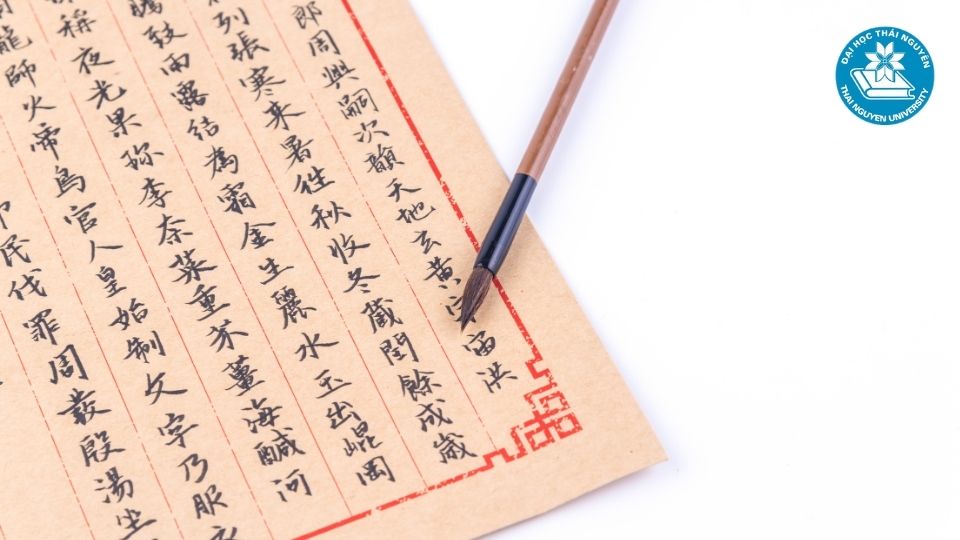 郎周興嗣次韻天地玄黃宇宙洪
列張寒来暑往秋收冬藏閏餘成歲
騰致雨露結為霜金生麗水玉出崐岡
稱夜光果珎李奈菜重芥薑海鹹河
龍師火帝鳥官人皇始制文字乃服
民伐罪周發殷湯坐
ĐẠI HỌC THÁI NGUYÊN
THAI NGUYEN UNIVERSITY